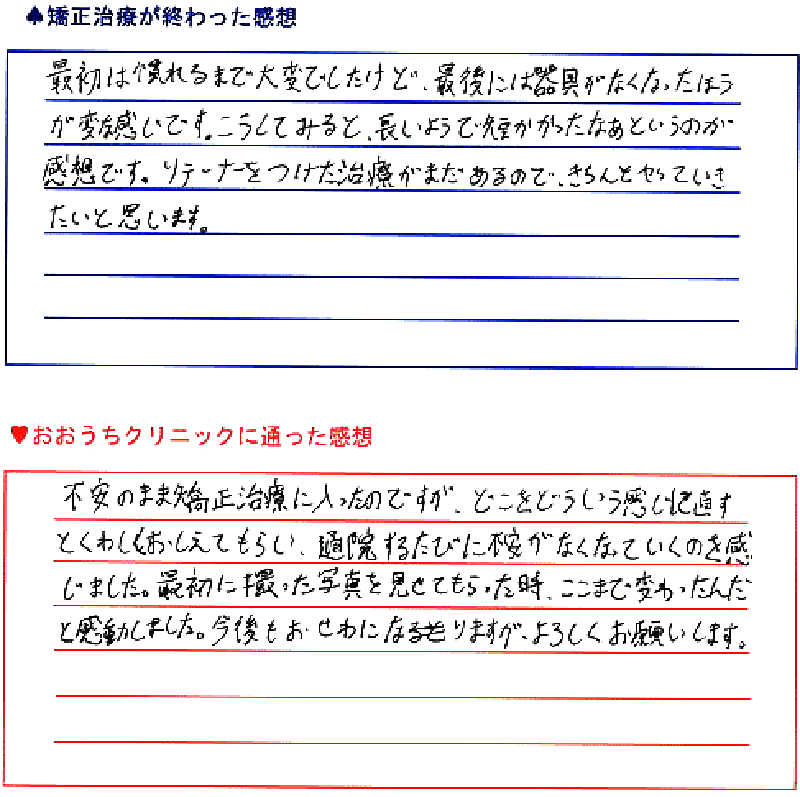 ♠矯正治療が終わった感想
最初は慣れるまで大変でしたけど、最後には器具がなくなったほう
が変な感じです。こうしてみると、長いようで短かかったなあというのが
感想です。リテーナーをつけた治療がまだあるので、きちんとやっていき
たいと思います。
♥おおうちクリニックに通った感想
不安のまま矯正治療に入ったのですが、どこをどういう感じに直す
とくわしくおしえてもらい、通院するたびに不安がなくなっていくのを感
じました。最初に撮った写真を見せてもらった時、ここまで変わったんだ
と感動しました。今後もおせわになりますが、よろしくお願いします。